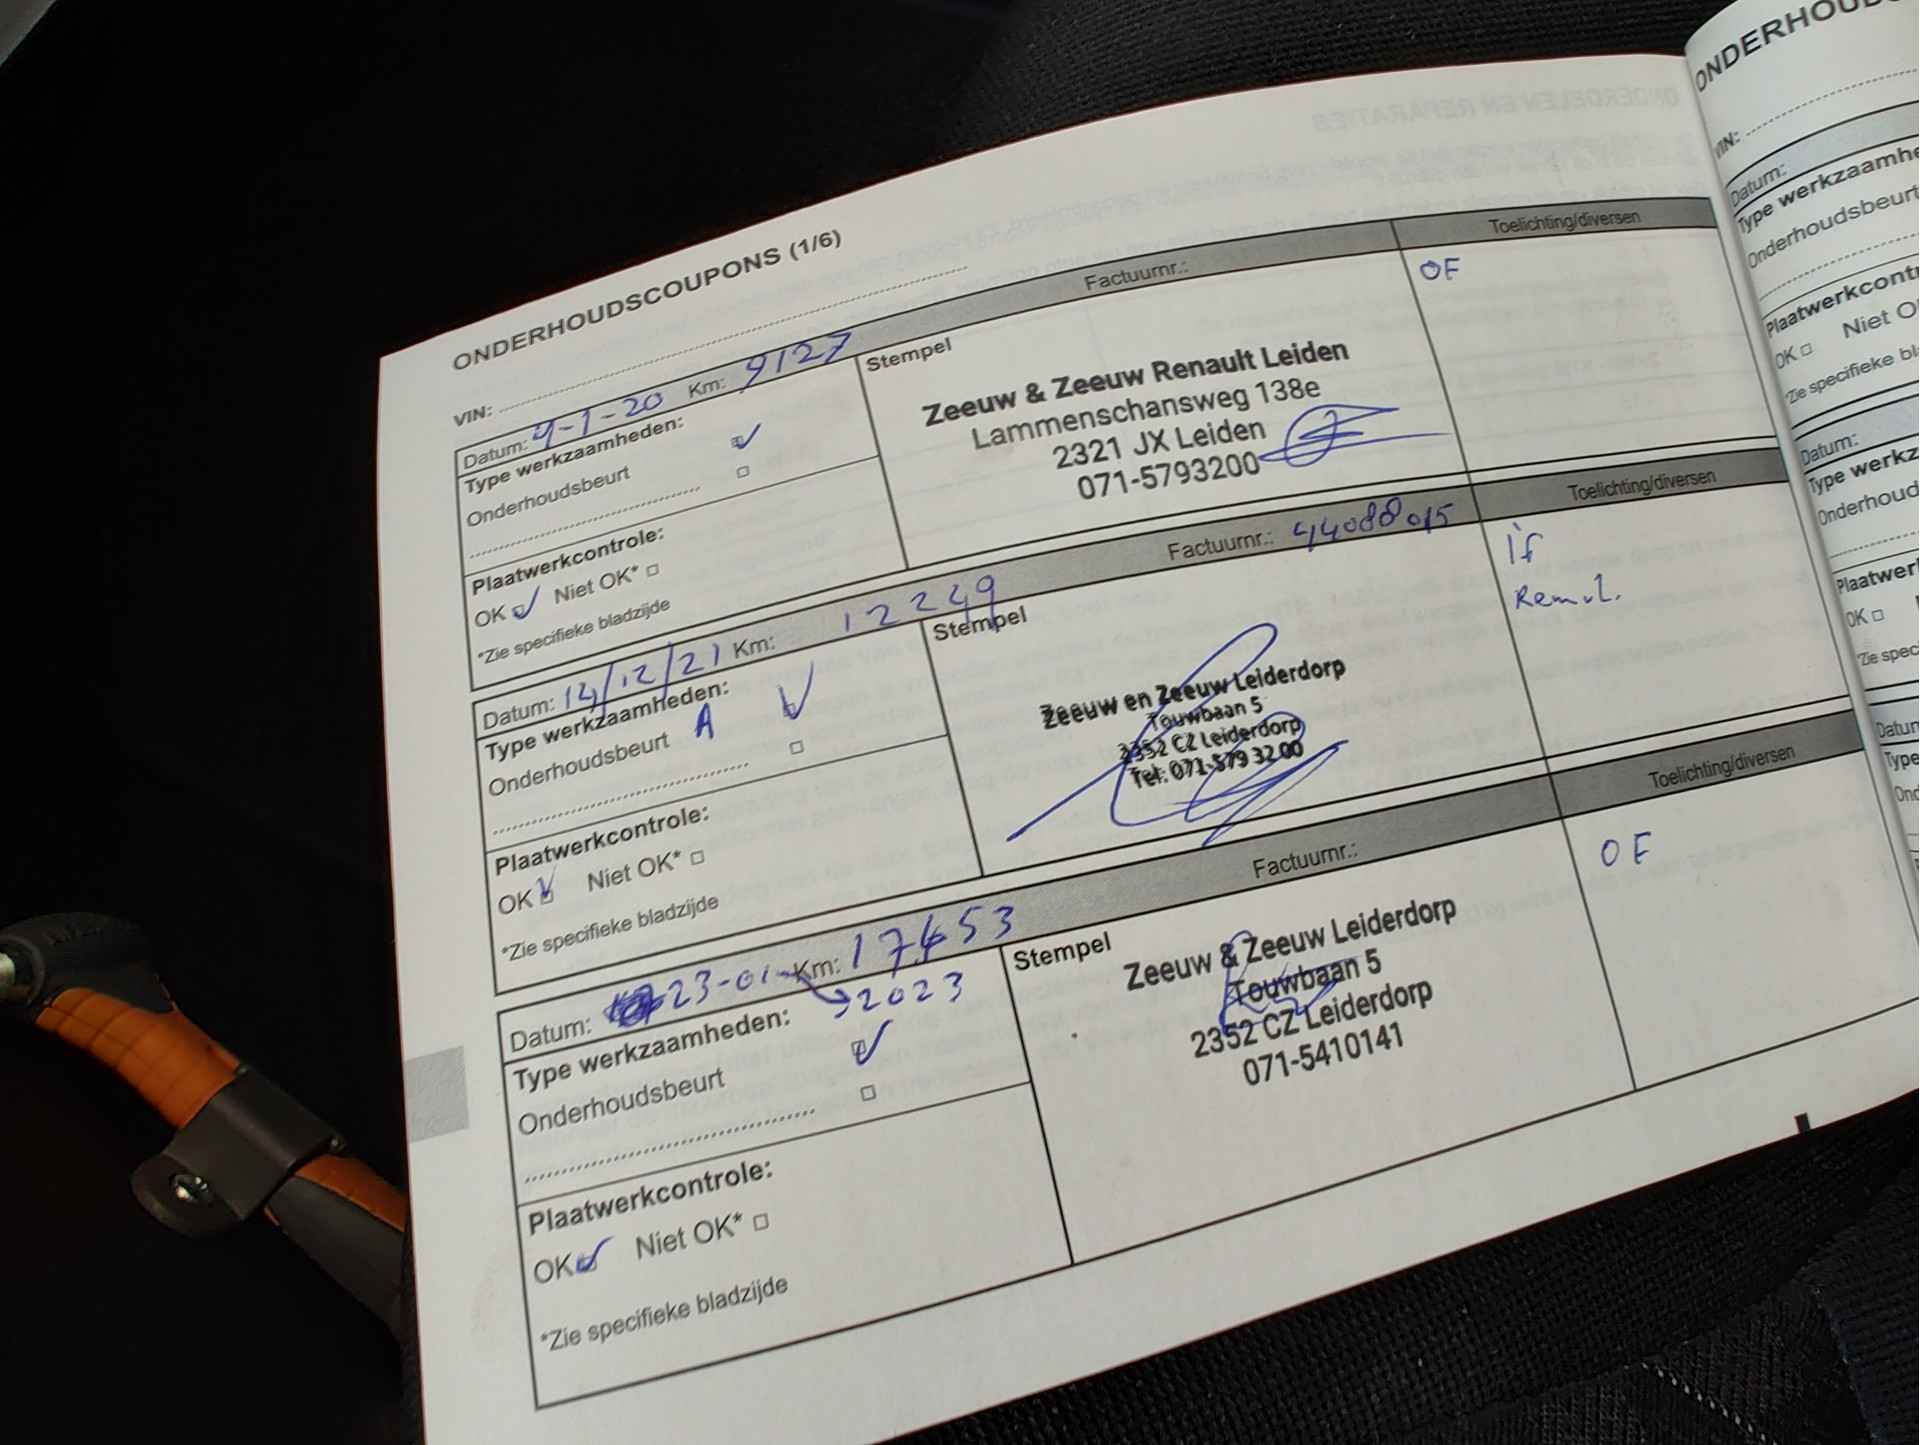 ONDERHOUDSCOUPONS (1/6)
VIN:
Datum: 9-1-20 Km: 9127 Factuurnr.: Toelichting/diversen
Type werkzaamheden:
Onderhoudsbeurt
Plaatwerkcontrole:
OK Niet OK*
*Zie specifieke bladzijde
Stempel
Zeeuw & Zeeuw Renault Leiden
Lammenschansweg 138e
2321 JX Leiden
071-5793200
OF
Datum: 14/12/21 Km: 12249 Factuurnr.: 44088015 Toelichting/diversen
Type werkzaamheden:
Onderhoudsbeurt A
Plaatwerkcontrole:
OK Niet OK*
*Zie specifieke bladzijde
Stempel
Zeeuw en Zeeuw Leiderdorp
Touwbaan 5
2352 CZ Leiderdorp
Tel: 071-579 32 00
If
Remvl.
Datum: 23-01- Km: 17453 Factuurnr.: Toelichting/diversen
2023
Type werkzaamheden:
Onderhoudsbeurt
Plaatwerkcontrole:
OK Niet OK*
*Zie specifieke bladzijde
Stempel
Zeeuw & Zeeuw Leiderdorp
Touwbaan 5
2352 CZ Leiderdorp
071-5410141
OF
VIN:
Datum:
Type
Onderhoudsbeurt
OK Niet
Datum:
Type
OK